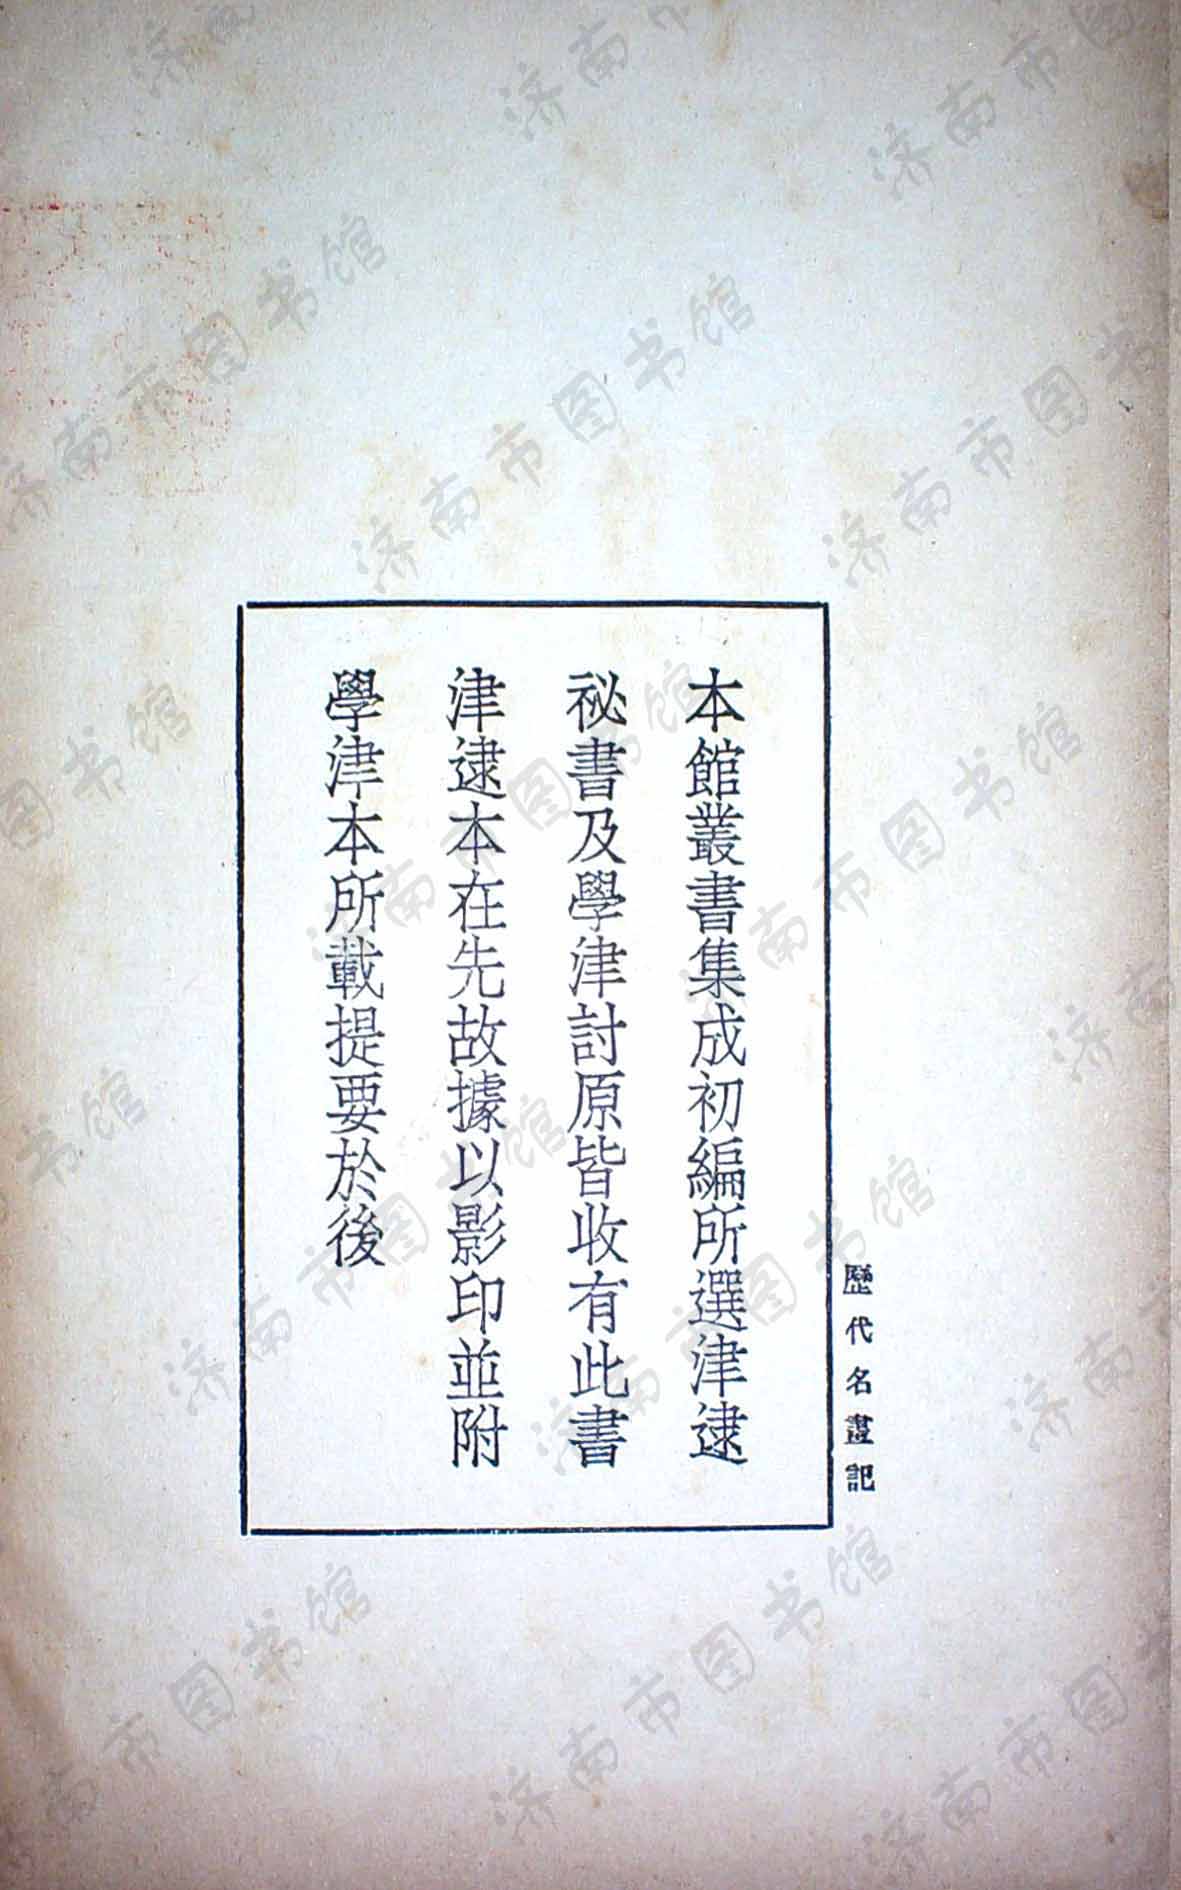 歷代名畫記
本館叢書集成初編所選津逮
祕書及學津討原皆收有此書
津逮本在先故據以影印並附
學津本所載提要於後
济南市图书馆